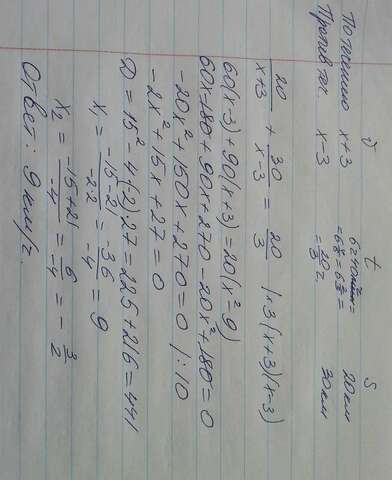 υ t S
По течению x+3 6ч40мин= 20км
=6 2/3=
Против теч. x-3 =20/3 ч. 30км
20/x+3 + 30/x-3 = 20/3 |×3(x+3)(x-3)
60(x-3)+90(x+3)=20(x²-9)
60x-180+90x+270-20x²+180=0
-20x²+150x+270=0 |:10
-2x²+15x+27=0
D=15²-4(-2)·27=225+216=441
x₁=-15-21/-2·2=-36/-4=9
x₂=-15+21/-4=6/-4=-3/2
Ответ: 9км/ч.